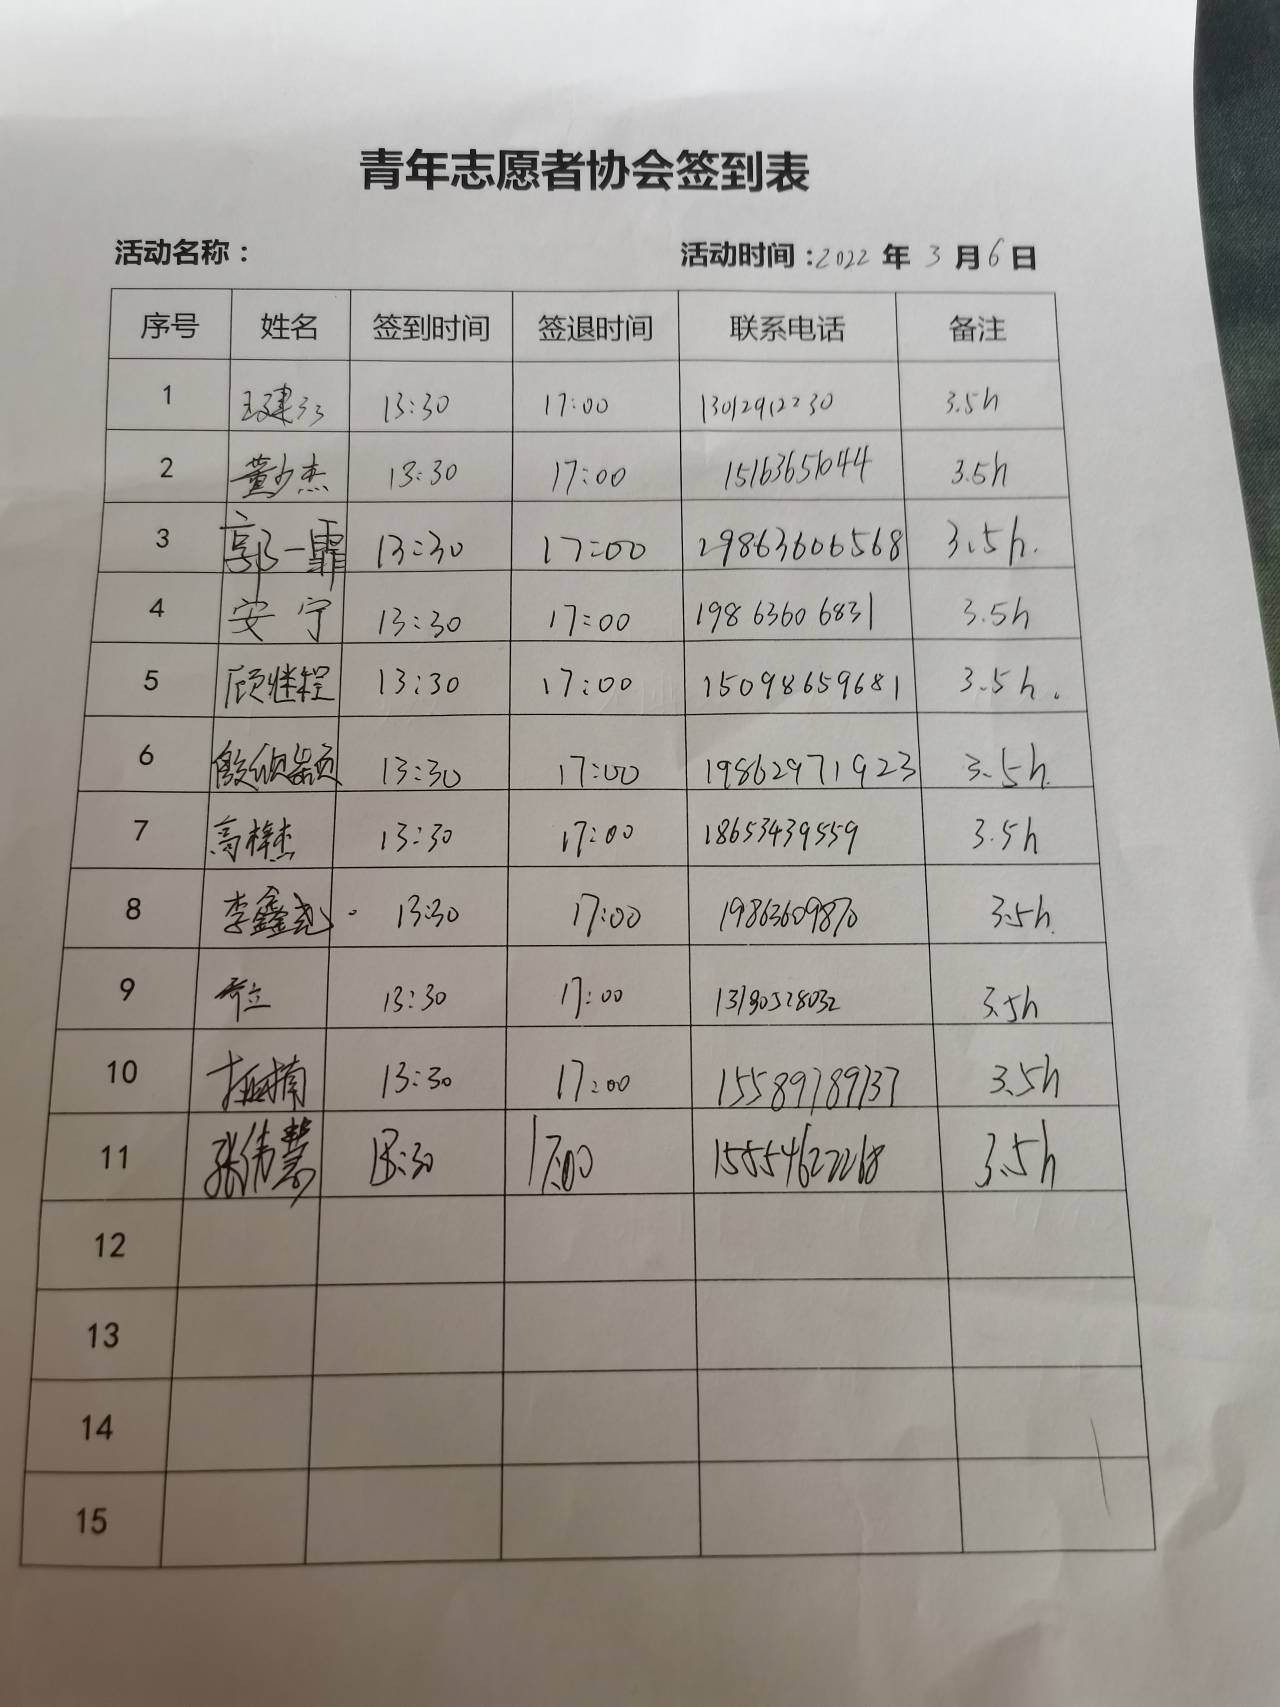 青年志愿者协会签到表
活动名称： 活动时间：2022 年 3 月 6 日
序号 姓名 签到时间 签退时间 联系电话 备注
1 13:30 17:00 13012912230 3.5h
2 董少杰 13:30 17:00 15163651044 3.5h
3 郭一霏 13:30 17:00 29863606568 3.5h.
4 安宁 13:30 17:00 19863606831 3.5h
5 顾继程 13:30 17:00 15098659681 3.5h.
6 殷欣颖 13:30 17:00 19862971923 3.5h.
7 高梓杰 13:30 17:00 18653439559 3.5h
8 李鑫尧 13:30 17:00 19863609870 3.5h.
9 13:30 17:00 13190528032 3.5h
10 13:30 17:00 15589789737 3.5h
11 张伟慧 13:30 17:00 3.5h
12
13
14
15